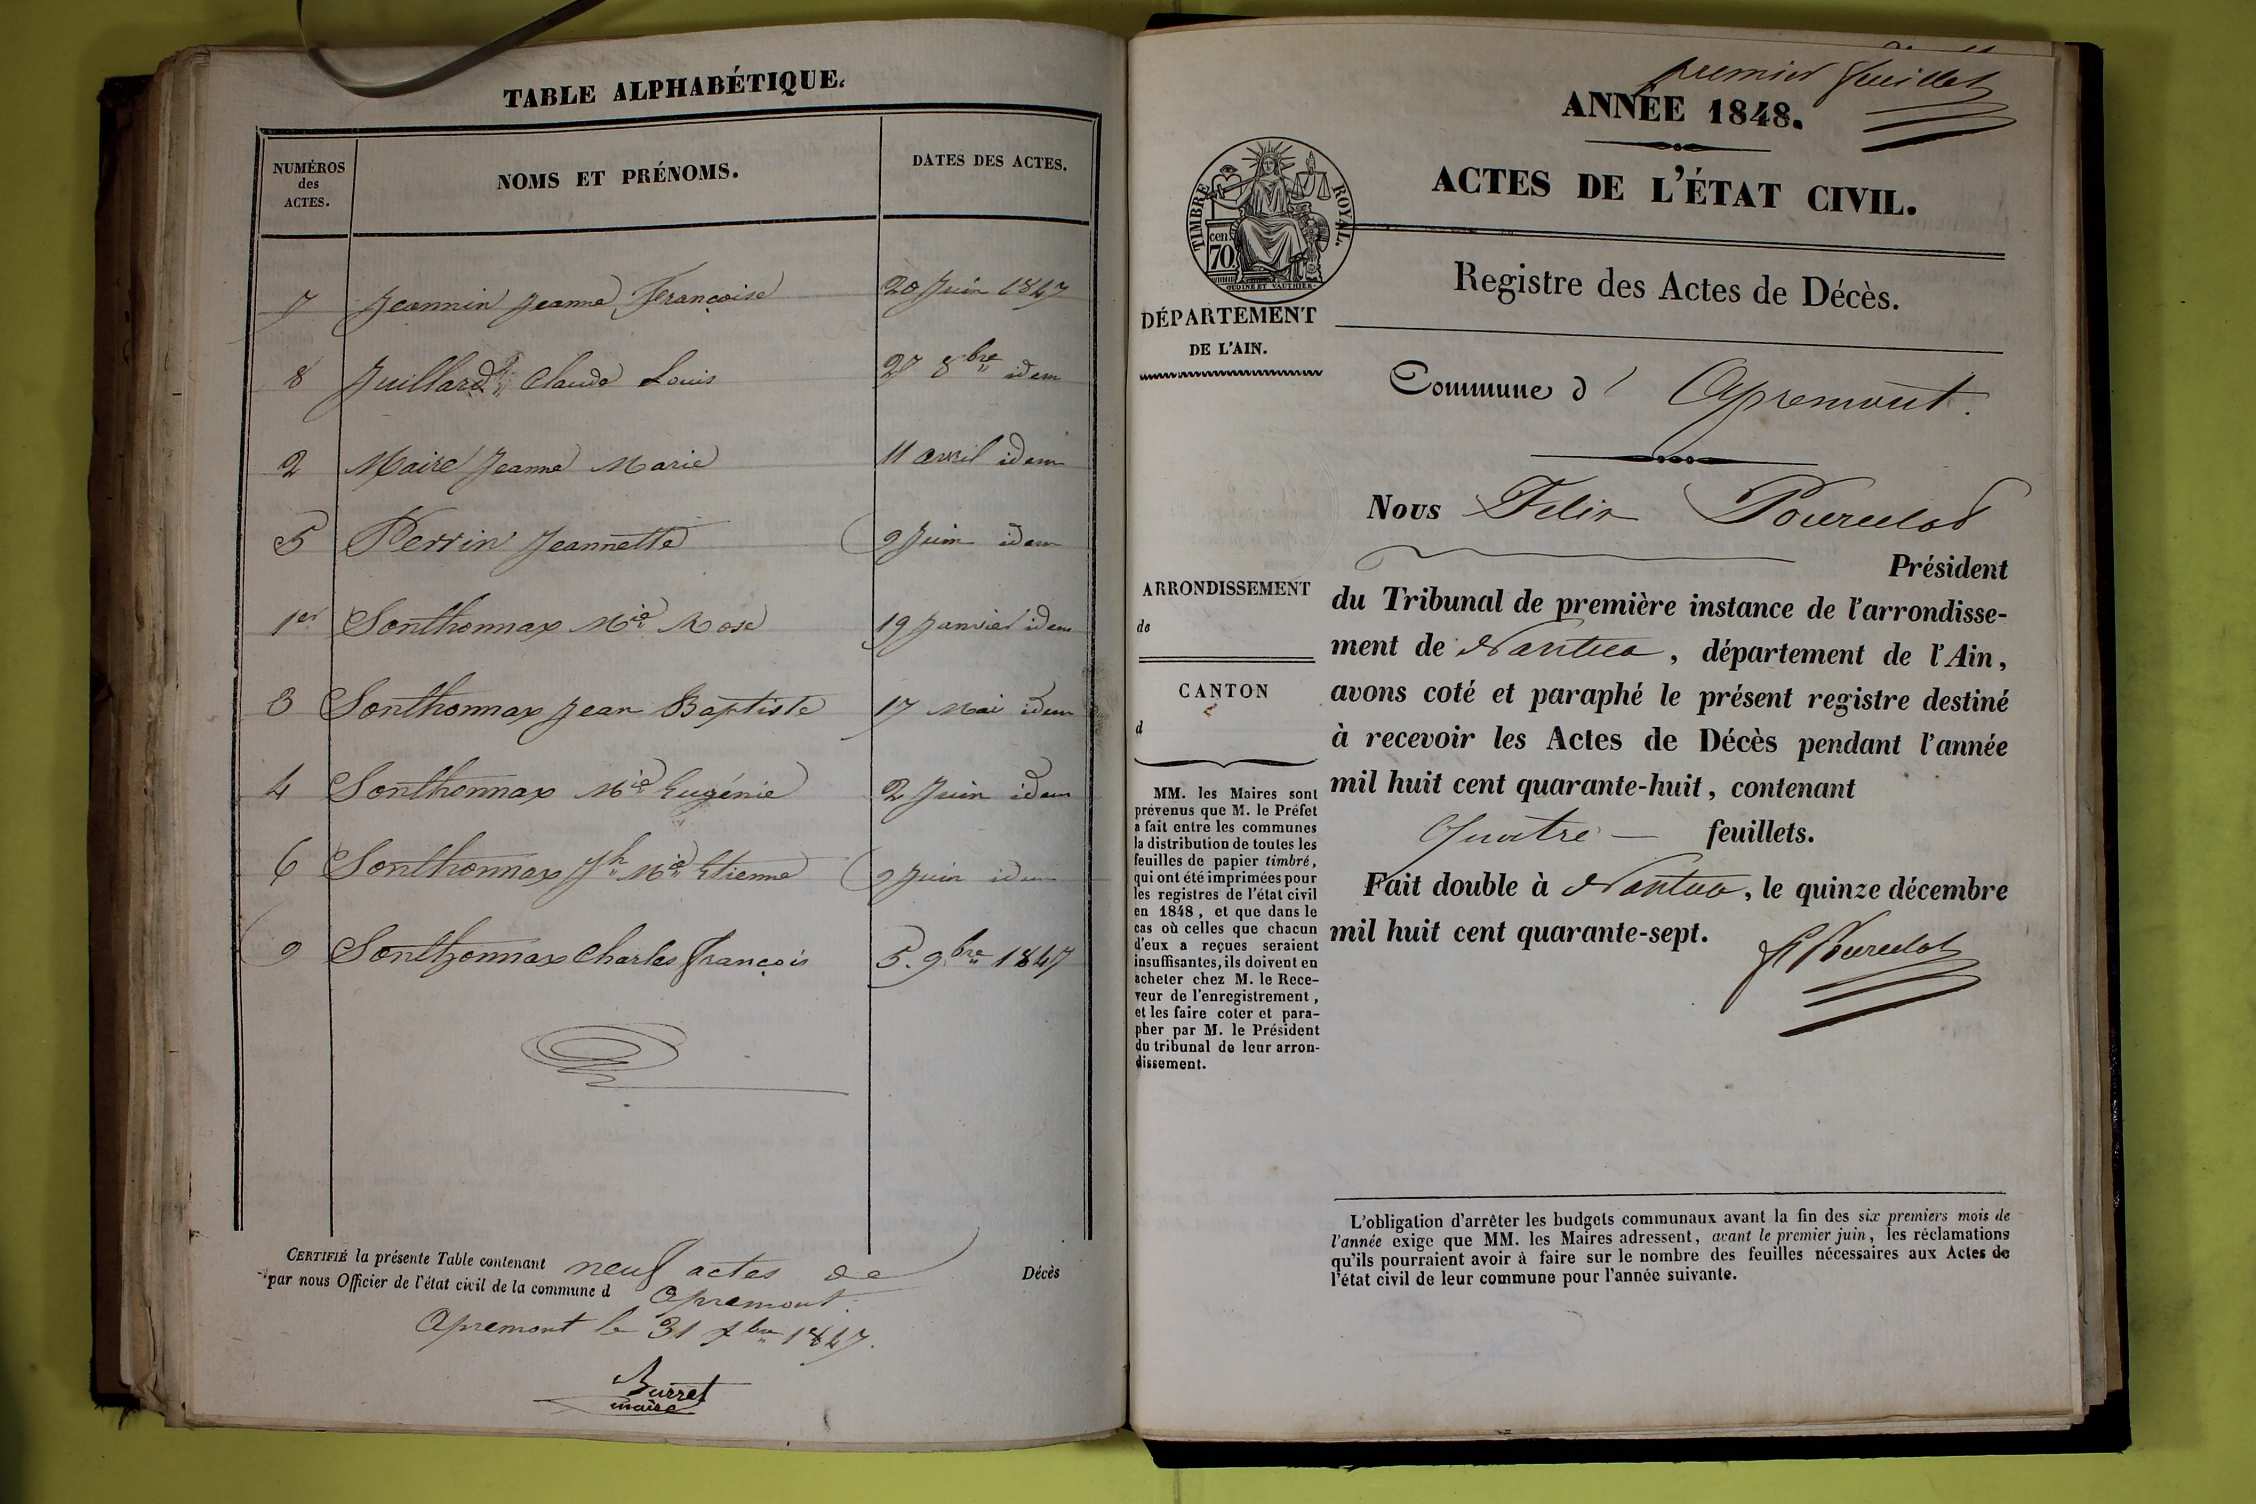 TABLE ALPHABÉTIQUE.
NUMÉROS
des
ACTES.
NOMS ET PRÉNOMS.
DATES DES ACTES.
7 Jeannin Jeanne Françoise 20 Juin 1847
8 Juillard Claude Louis 27 8bre idem
2 Maire Jeanne Marie 11 avril idem
5 Perrin Jeannette 9 Juin idem
1er Sonthonnax Mie Rose 19 Janvier idem
3 Sonthonnax Jean Baptiste 17 Mai idem
4 Sonthonnax Mie Eugénie 2 Juin idem
6 Sonthonnax Jh Mie Etienne 9 Juin idem
9 Sonthonnax Charles François 5. 9bre 1847
CERTIFIÉ la présente Table contenant neuf actes de Décès
par nous Officier de l'état civil de la commune d Apremont.
Apremont le 31 xbre 1847.
Burret
maire
premier feuillet
ANNÉE 1848.
ACTES DE L'ÉTAT CIVIL.
TIMBRE ROYAL.
cen.
70
Registre des Actes de Décès.
DÉPARTEMENT
DE L'AIN.
Commune d' Apremont.
Nous Felix Pourcelot
Président
ARRONDISSEMENT
de
CANTON
d
du Tribunal de première instance de l'arrondisse-
ment de Nantua, département de l'Ain,
avons coté et paraphé le présent registre destiné
à recevoir les Actes de Décès pendant l'année
mil huit cent quarante-huit, contenant
Quatre — feuillets.
Fait double à Nantua, le quinze décembre
mil huit cent quarante-sept.
MM. les Maires sont
prévenus que M. le Préfet
a fait entre les communes
la distribution de toutes les
feuilles de papier timbré,
qui ont été imprimées pour
les registres de l'état civil
en 1848, et que dans le
cas où celles que chacun
d'eux a reçues seraient
insuffisantes, ils doivent en
acheter chez M. le Rece-
veur de l'enregistrement,
et les faire coter et para-
pher par M. le Président
du tribunal de leur arron-
dissement.
L'obligation d'arrêter les budgets communaux avant la fin des six premiers mois de
l'année exige que MM. les Maires adressent, avant le premier juin, les réclamations
qu'ils pourraient avoir à faire sur le nombre des feuilles nécessaires aux Actes de
l'état civil de leur commune pour l'année suivante.